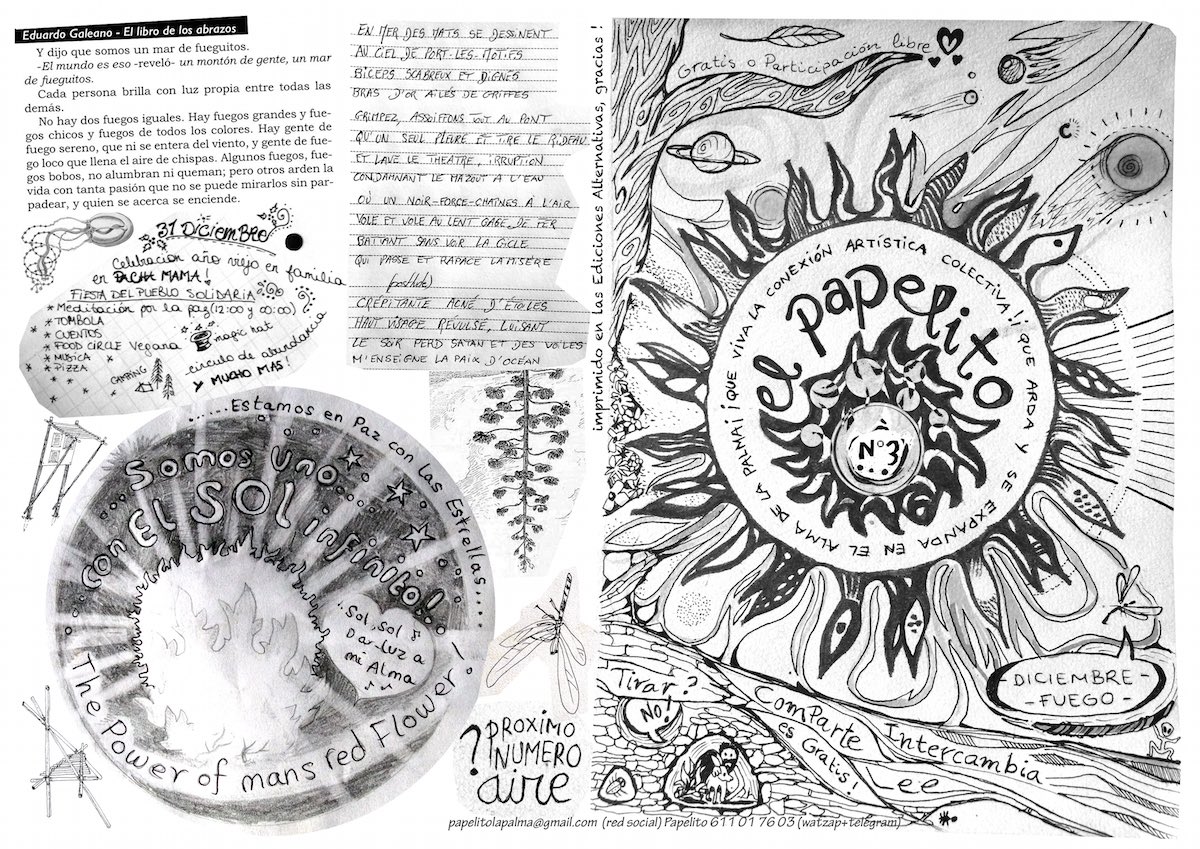 Eduardo Galeano - El libro de los abrazos
Y dijo que somos un mar de fueguitos.
-El mundo es eso -reveló- un montón de gente, un mar
de fueguitos.
Cada persona brilla con luz propia entre todas las
demás.
No hay dos fuegos iguales. Hay fuegos grandes y fue-
gos chicos y fuegos de todos los colores. Hay gente de
fuego sereno, que ni se entera del viento, y gente de fue-
go loco que llena el aire de chispas. Algunos fuegos, fue-
gos bobos, no alumbran ni queman; pero otros arden la
vida con tanta pasión que no se puede mirarlos sin par-
padear, y quien se acerca se enciende.
31 Diciembre
Celebracion año viejo en familia
en PACHA MAMA!
FIESTA DEL PUEBLO SOLIDARIA
* Meditación por la paz (12:00 y 00:00)
* TOMBOLA
* CUENTOS
* FOOD CIRCLE Vegana
* MUSICA
* PIZZA
magic hat
circulo de abundancia
CAMPING
y MUCHO MAS!
EN MER DES MATS SE DESSINENT
AU CIEL DE PORT-LES-MOTIFS
BICEPS SCABREUX ET DIGNES
BRAS D'OR AILÉS DE GRIFFES
GRIMPEZ, ASSOIFFONS TOUT AU PONT
QU'UN SEUL PLEURE ET TIRE LE RIDEAU
ET LAVE LE THEATRE, IRRUPTION
CONDAMNANT LE MAZOUT A L'EAU
OÙ UN NOIR-FORCE-CHAÎNES À L'AIR
VOLE ET VOLE AU LENT GAGE, DE FER
BATTANT SANS VOIR LA GICLE
QUI PASSE ET RAPACE LA MISÈRE
CRÉPITANTE ACNÉ D'ÉTOILES
HAUT VISAGE RÉVULSÉ, LUISANT
LE SOIR PERD SATAN ET DES VOILES
M'ENSEIGNE LA PAIX D'OCÉAN
......Estamos en Paz con las Estrellas....
Somos uno...
con EL SOL infinito!!
"Sol, Sol
Dar luz a
mi Alma
The Power of mans red Flower!
? PROXIMO
NUMERO
aire
papelitolapalma@gmail.com (red social) Papelito 611 01 76 03 (watzap+telegram)
imprimido en las Ediciones Alternativas, gracias !
Gratis o Participación libre
¡ QUE VIVA LA CONEXIÓN ARTÍSTICA COLECTIVA!! ¡ QUE ARDA Y SE EXPANDA EN EL ALMA DE LA PALMA
el papelito
N°3
DICIEMBRE
- FUEGO -
Tirar?
No!
Comparte
es Gratis!
Intercambia
Lee